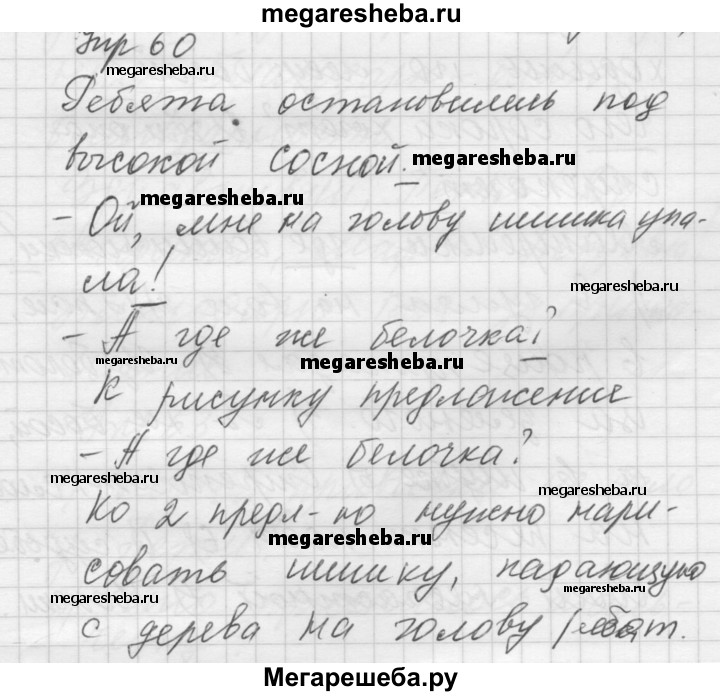 megaresheba.ru
Упр 60
megaresheba.ru
Ребята остановились под
высокой сосной. megaresheba.ru
megaresheba.ru
- Ой, мне на голову шишка упа-
ла!
megaresheba.ru
- А где же белочка?
megaresheba.ru
megaresheba.ru
К рисунку предложение
- А где же белочка?
megaresheba.ru
megaresheba.ru
Ко 2 предл-ю нужно нари-
megaresheba.ru
совать шишку, падающую
megaresheba.ru
megaresheba.ru
с дерева на голову
Мегарешеба.ру